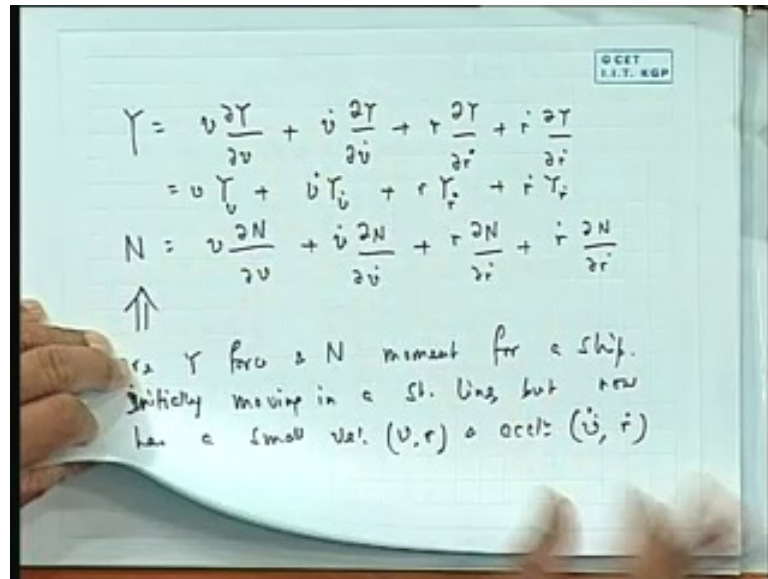 © CET
I.I.T. KGP
Y = v ∂Y/∂v + v̇ ∂Y/∂v̇ + r ∂Y/∂ṙ + ṙ ∂Y/∂ṙ
= v Y_v + v̇ Y_v̇ + r Y_ṙ + ṙ Y_ṙ
N = v ∂N/∂v + v̇ ∂N/∂v̇ + r ∂N/∂ṙ + ṙ ∂N/∂ṙ
⇑
Y force & N moment for a ship.
initially moving in a St. line, but now
has a small vel. (v, r) & accln (v̇, ṙ)